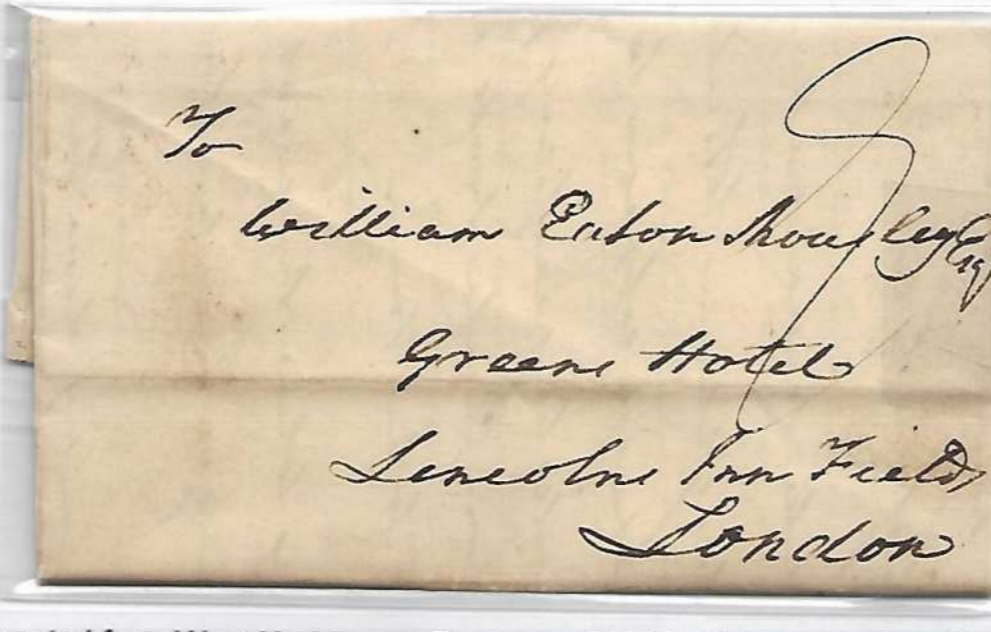 To
William Eaton Mousley Esq
Greens Hotel
Lincolns Inn Fields
London